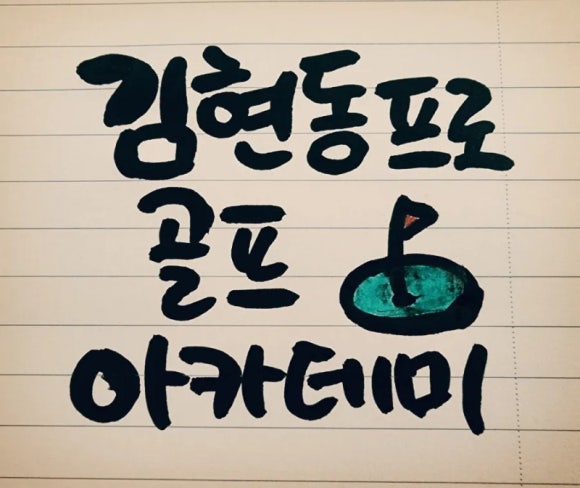 김현동프로
골프
아카데미